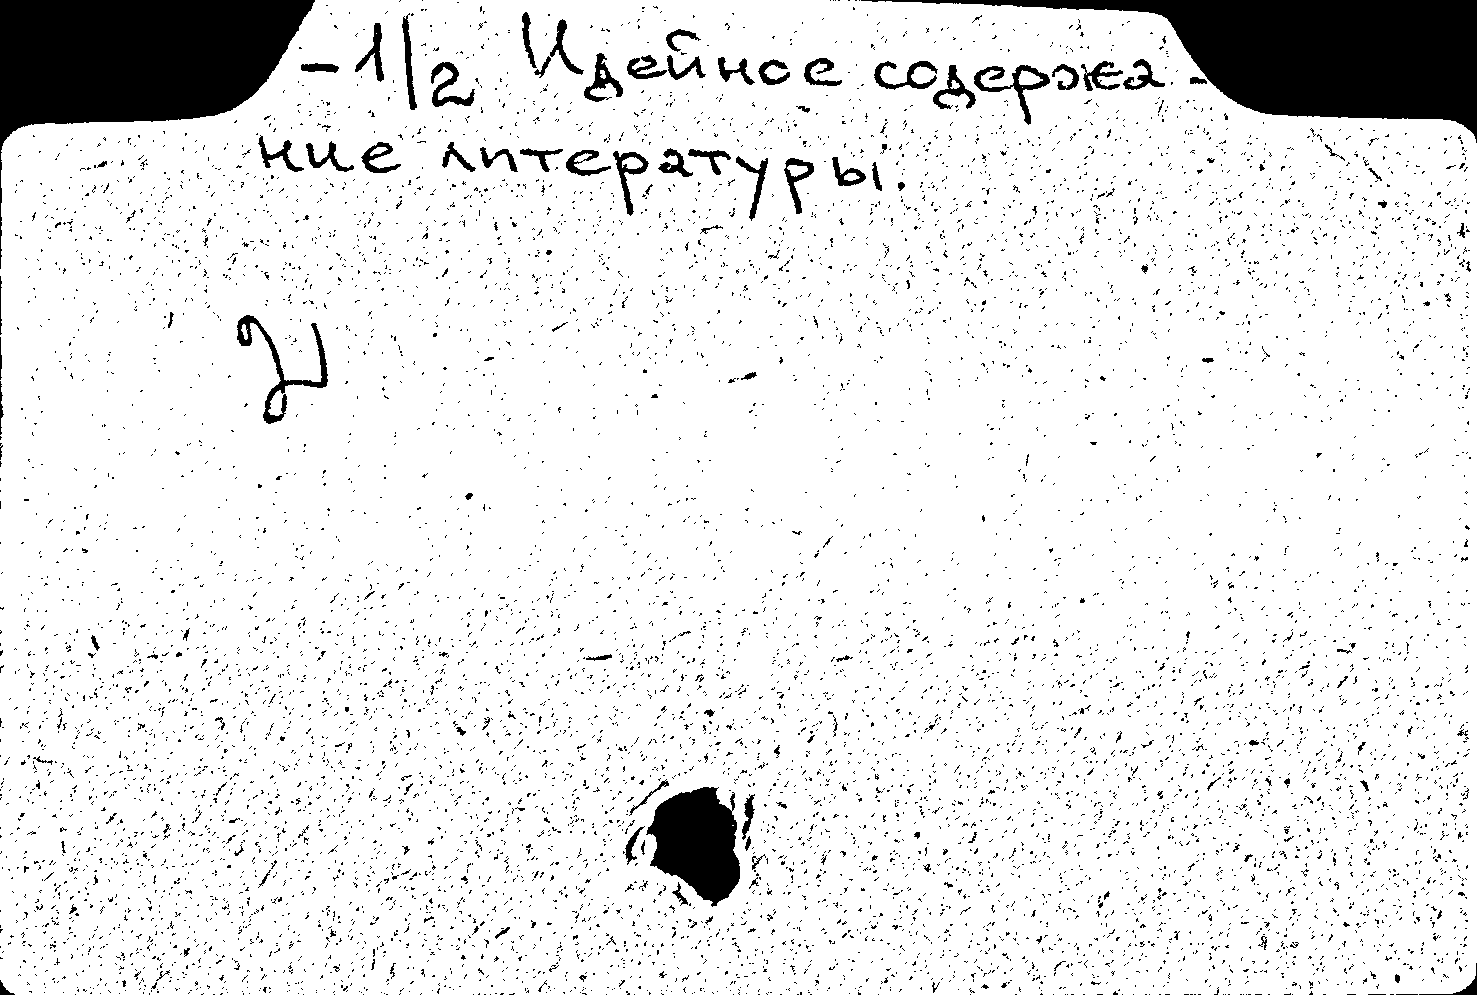 -1/2 Идейное содержа-
ние литературы.